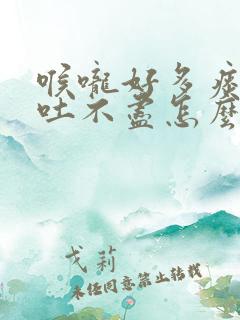 喉嚨好多痰
吐不盡怎麼
戈莉
未经同意禁止转载